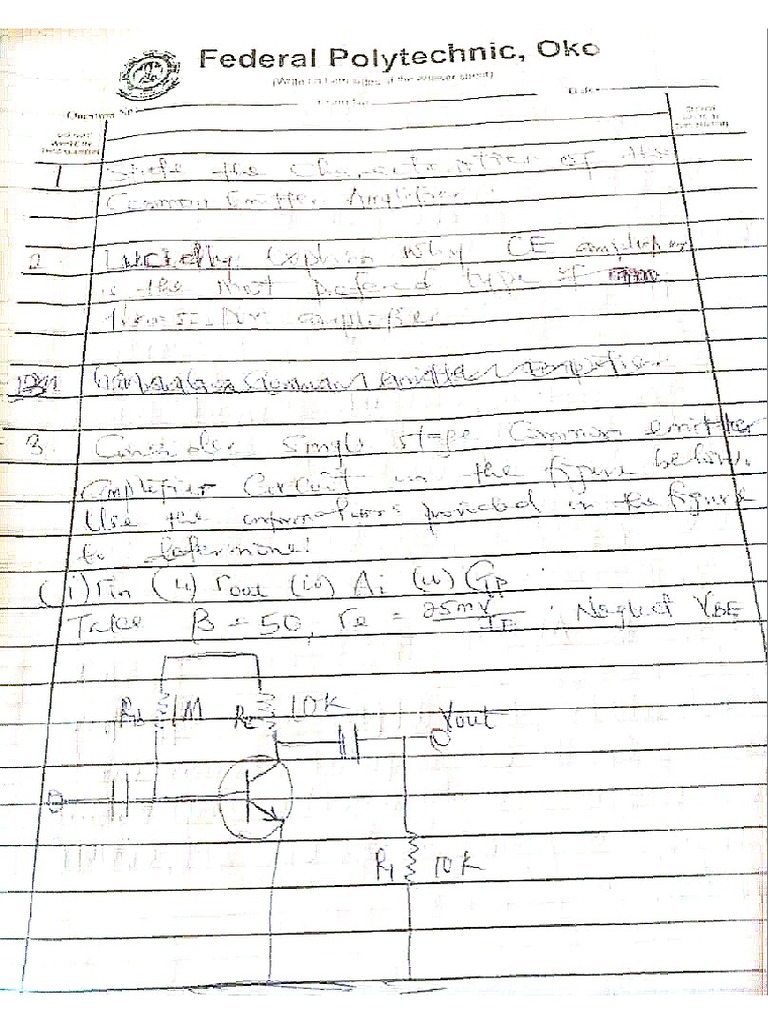 Federal Polytechnic, Oko
Question No
1 State the Characteristics of the
Common Emitter Amplifier.
2 Lucidly Explain why CE amplifier
is the most prefered type of
transistor amplifier
3 Consider single stage Common emitter
amplifier Circuit in the figure below.
Use the informations provided in the figure
to determine:
(i) rin (ii) rout (iii) Ai (iv) Gp
Take β = 50, re = 25mV/IE . Neglect VBE
Rb 1M Rc 10K Vout
RL 10K